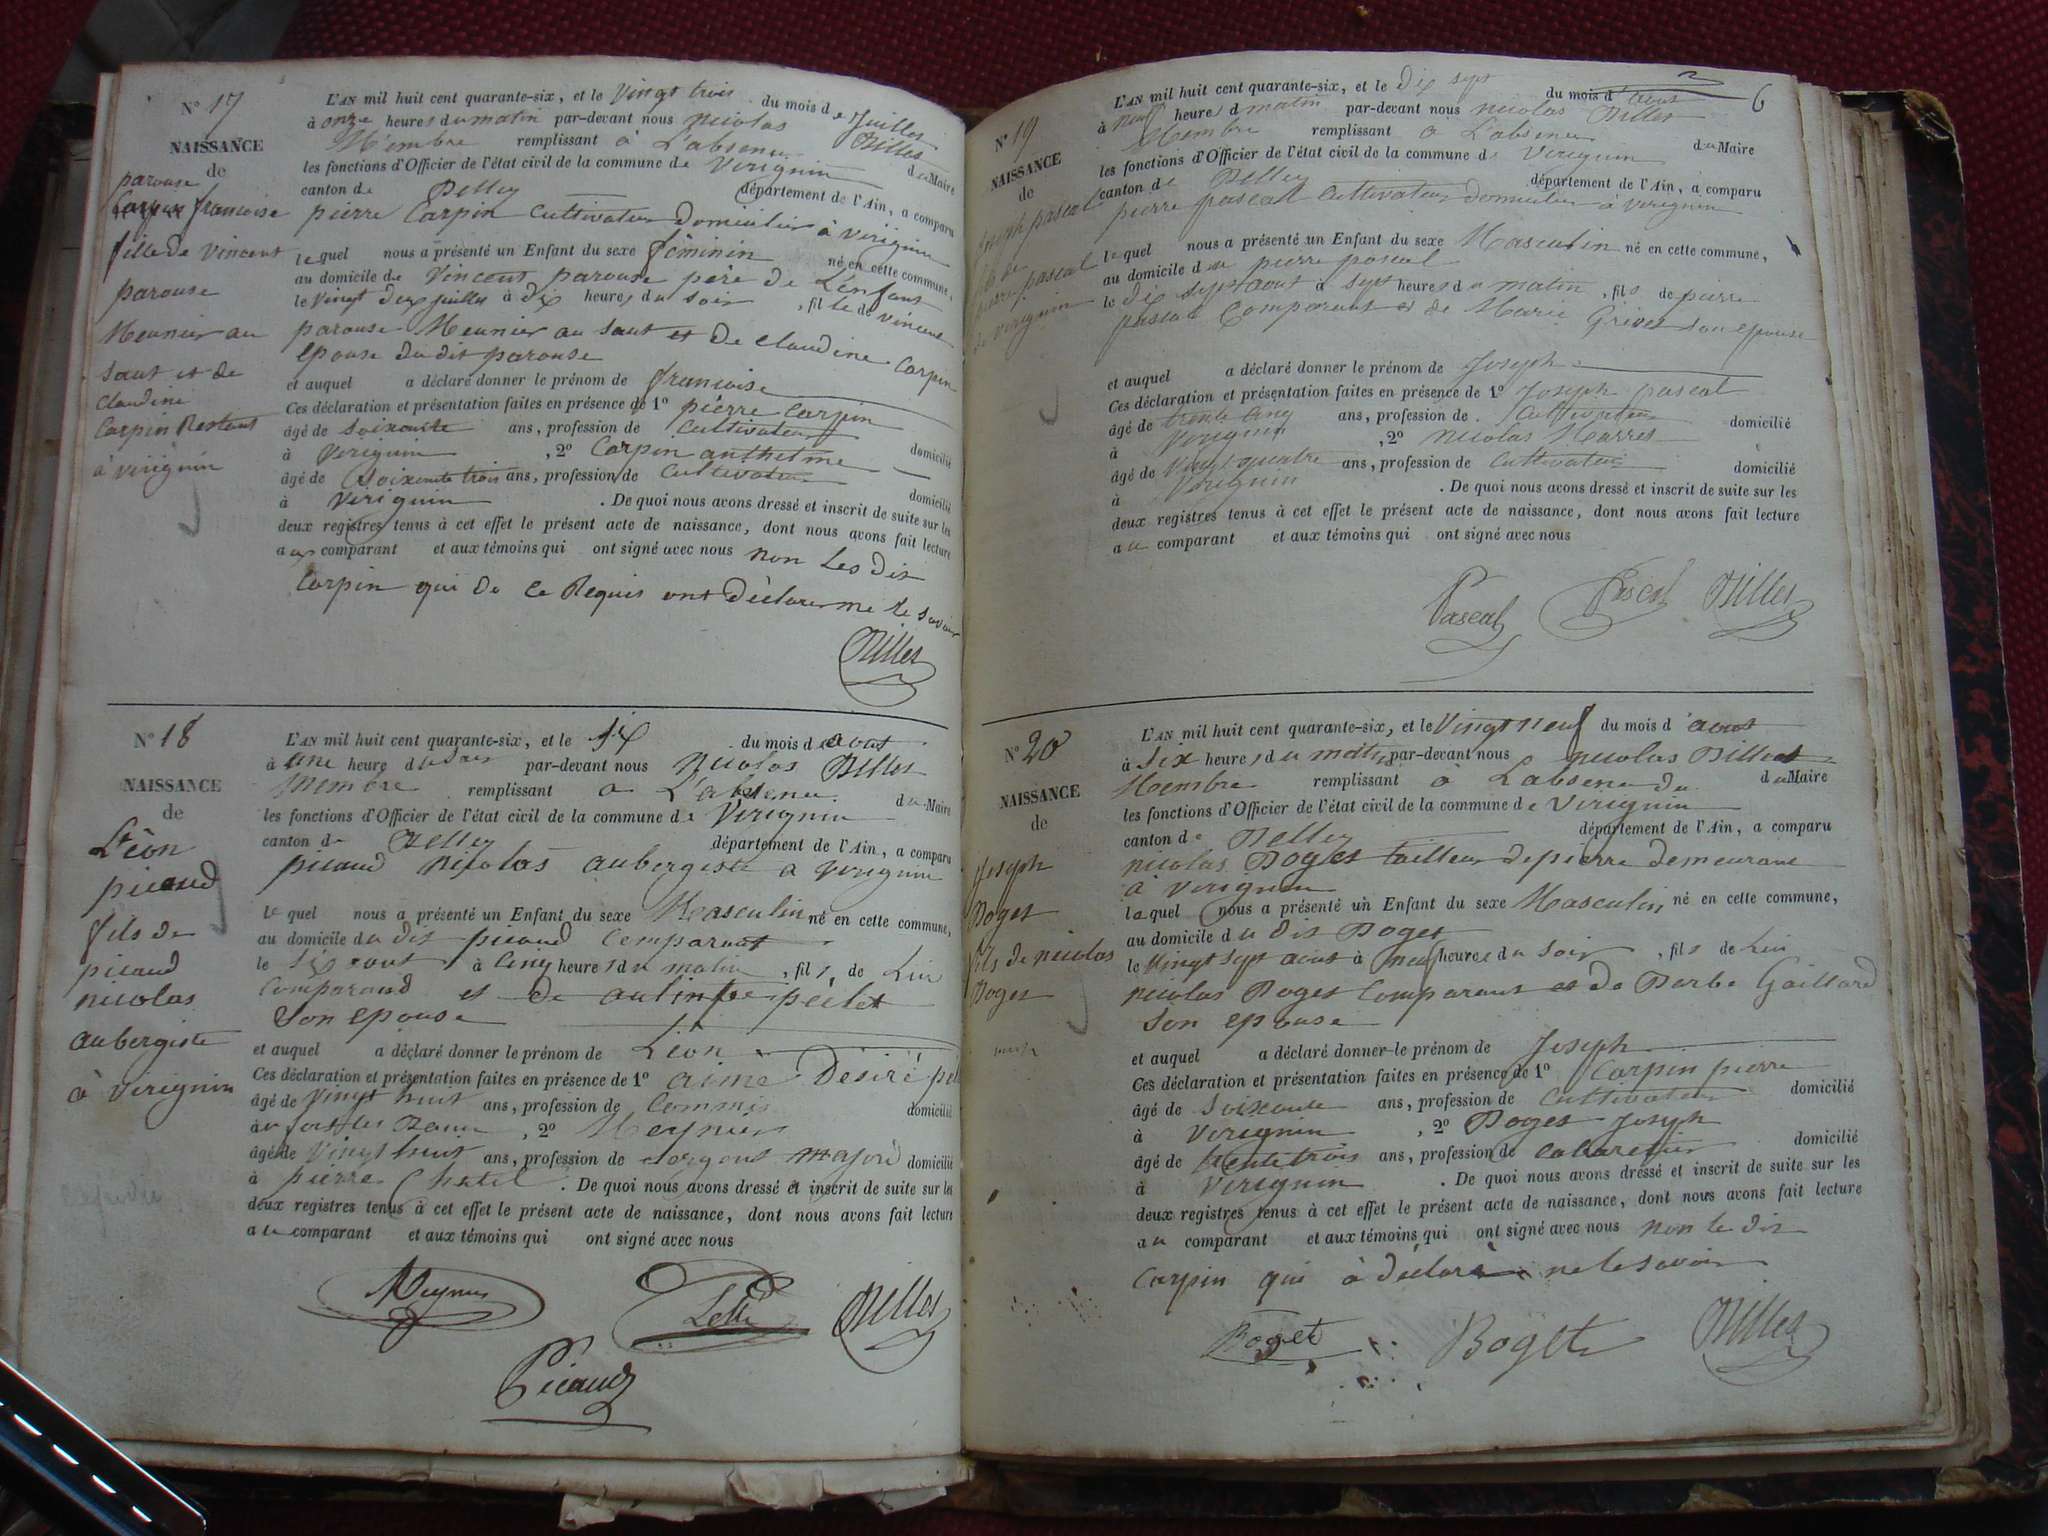 N° 17
NAISSANCE
de
parouse
françoise
fille de vincent
parouse
Meunier au
saut et de
claudine
Carpin Restant
à virignin
L'AN mil huit cent quarante-six, et le Vingt trois du mois de Juillet
à onze heures du matin par-devant nous nicolas Billet
Membre remplissant à L'absence du Maire
les fonctions d'Officier de l'état civil de la commune de Virignin
canton de Belley département de l'Ain, a comparu
pierre Carpin Cultivateur Domicilier à virignin
lequel nous a présenté un Enfant du sexe féminin né en cette commune,
au domicile de Vincent parouse père de L'enfant
le Vingt deux juillet à dix heures du soir, fille de vincent
parouse Meunier au saut et de claudine Carpin
epouse du dit parouse
et auquel a déclaré donner le prénom de françoise
Ces déclaration et présentation faites en présence de 1° pierre Carpin
âgé de soixante ans, profession de Cultivateur domicilié
à Virignin, 2° Carpin anthelme
âgé de soixente trois ans, profession de Cultivateur domicilié
à Virignin. De quoi nous avons dressé et inscrit de suite sur les
deux registres tenus à cet effet le présent acte de naissance, dont nous avons fait lecture
aux comparant et aux témoins qui ont signé avec nous non Les dit
Carpin qui de ce Requis ont déclarer ne le savoir
Billet
N° 18
NAISSANCE
de
Léon
picaud
fils de
picaud
nicolas
aubergiste
à virignin
L'AN mil huit cent quarante-six, et le six du mois d'aout
à une heure du soir par-devant nous Nicolas Billet
Membre remplissant à L'absence du Maire
les fonctions d'Officier de l'état civil de la commune de Virignin
canton de Belley département de l'Ain, a comparu
picaud Nicolas aubergiste à Virignin
lequel nous a présenté un Enfant du sexe Masculin né en cette commune,
au domicile du dit picaud Comparant
le Six aout à Cinq heures du matin, fils de Lui
Comparand et de
Son epouse
et auquel a déclaré donner le prénom de Léon
Ces déclaration et présentation faites en présence de 1° aime Désiré
âgé de Vingt huit ans, profession de Commis domicilié
, 2° Meynier
âgé de Vingt huit ans, profession de sergent majord domicilié
à pierre Chatel. De quoi nous avons dressé et inscrit de suite sur les
deux registres tenus à cet effet le présent acte de naissance, dont nous avons fait lecture
au comparant et aux témoins qui ont signé avec nous
Meynier Billet
Picaud
6
N° 19
NAISSANCE
de
joseph pascal
fils de
pierre pascal
de virignin
L'AN mil huit cent quarante-six, et le Dix sept du mois d'aout
à neuf heures du matin par-devant nous nicolas Billet
Membre remplissant à L'absence du Maire
les fonctions d'Officier de l'état civil de la commune de Virignin
canton de Belley département de l'Ain, a comparu
pierre pascal Cultivateur domicilier à virignin
lequel nous a présenté un Enfant du sexe Masculin né en cette commune,
au domicile de pierre pascal
le Dix sept aout à sept heures du matin, fils de pierre
pascal Comparant et de Marie Grivet son epouse
et auquel a déclaré donner le prénom de Joseph
Ces déclaration et présentation faites en présence de 1° Joseph pascal
âgé de trente cinq ans, profession de Cultivateur domicilié
à Virignin, 2° Nicolas Marret
âgé de Vingt quatre ans, profession de Cultivateur domicilié
à Virignin. De quoi nous avons dressé et inscrit de suite sur les
deux registres tenus à cet effet le présent acte de naissance, dont nous avons fait lecture
au comparant et aux témoins qui ont signé avec nous
Pascal Pascal Billet
N° 20
NAISSANCE
de
Joseph
Boget
fils de nicolas
Boget
L'AN mil huit cent quarante-six, et le Vingt neuf du mois d'aout
à Six heures du matin par-devant nous nicolas Billet
Membre remplissant à L'absence du du Maire
les fonctions d'Officier de l'état civil de la commune de Virignin
canton de Belley département de l'Ain, a comparu
nicolas Boget tailleur de pierre demeurant
à Virignin
lequel nous a présenté un Enfant du sexe Masculin né en cette commune,
au domicile du dit Boget
le Vingt sept aout à neuf heures du soir, fils de Lui
nicolas Boget Comparant et de Barbe Gaillard
Son epouse
et auquel a déclaré donner le prénom de Joseph
Ces déclaration et présentation faites en présence de 1° Carpin pierre
âgé de Soixante ans, profession de Cultivateur domicilié
à Virignin, 2° Boget Joseph
âgé de trente trois ans, profession de Cabaretier domicilié
à Virignin. De quoi nous avons dressé et inscrit de suite sur les
deux registres tenus à cet effet le présent acte de naissance, dont nous avons fait lecture
au comparant et aux témoins qui ont signé avec nous non le dit
Carpin qui à déclaré ne le savoir
Boget Boget Billet